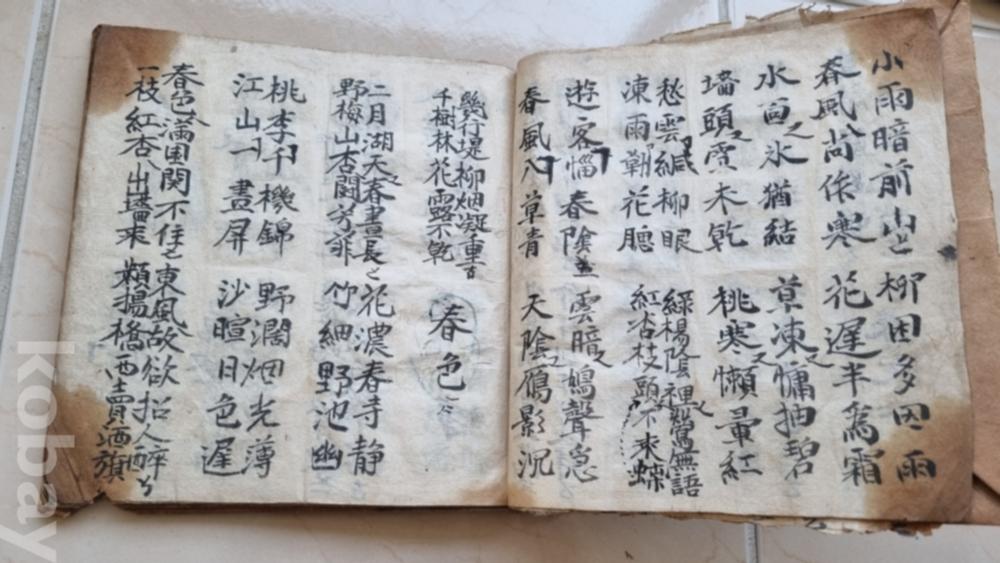 小雨暗前山 柳因多因雨
春風尚作寒 花遅半為霜
水面氷猶結 草凍慵抽碧
墻頭雪未乾 桃寒懶暈紅
愁雲緘柳眼 綠楊陰裡鶯無語
凍雨勒花 紅杏枝頭不来蝶
遊客惱春陰 雲暗鳩聲急
春風入草青 天陰鴈影沉
幾行堤柳烟凝重
千樹林花露不乾
春色
二月湖天春晝長 花濃春寺静
野梅山杏闘芳菲 竹細野池幽
桃李千機錦 野濶烟光薄
江山一畫屏 沙暄日色遲
春色滿園関不住 東風故欲招人醉
一枝紅杏出墻来 類揚橋西賣酒旗
kobay